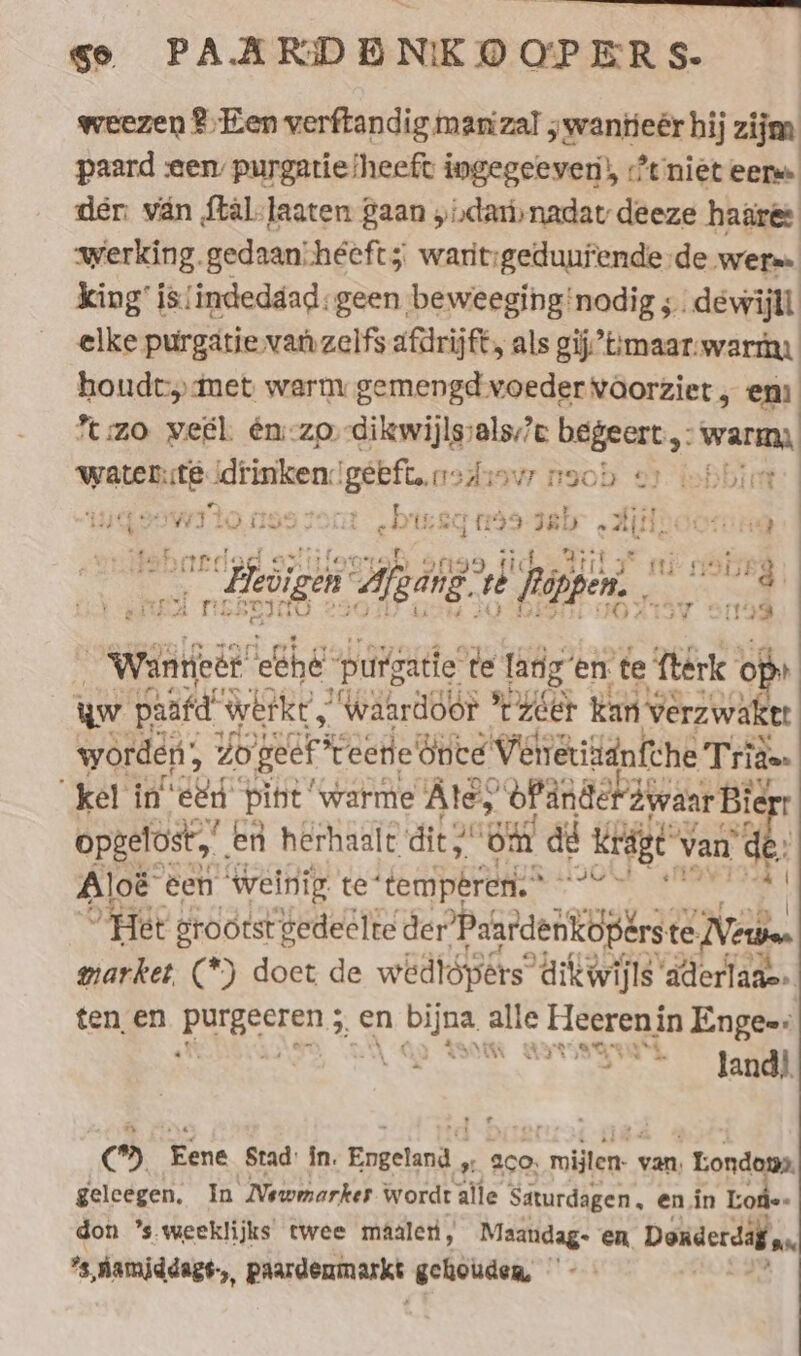 90 PAARDENKOOPERS.
weezen? Een verſtandig man zal, wanneer hij zijn
paard een purgatie heeft ingegeeven, 't niet eer-
der van ſtal laaten gaan, dan nadat deeze haare
werking gedaan heeft; want geduurende de wer-
king is indedaad geen beweeging nodig; dewijl
elke purgatie van zelfs afdrijft, als gij 't maar warm
houdt, met warm gemengd voeder voorziet, en
't zo veel en zo dikwijls als 't begeert, warm
water te drinken geeft.
Hevigen Afgang te ſtoppen.
Wanneer eene purgatie te lang en te ſterk op
uw paard werkt, waardoor 't zeer kan verzwakt
worden, zo geef 't eene once Venetiaanſche Tria-
kel in een pint warme Ale, of ander zwaar Bier
opgelost, en herhaalt dit, om de kragt van de
Aloë een weinig te temperen.
Het grootst gedeelte der Paardenkopers te New-
market (*) doet de wedlopers dikwijls aderlaa-
ten en purgeeren; en bijna alle Heeren in Enge-
land
(*) Eene Stad in Engeland, mijlen van London
geleegen. In Newmarket wordt alle Saturdagen, en in Lon-
don 's weeklijks twee maalen, Maandag- en Donderdag
's namiddags, paardenmarkt gehouden.